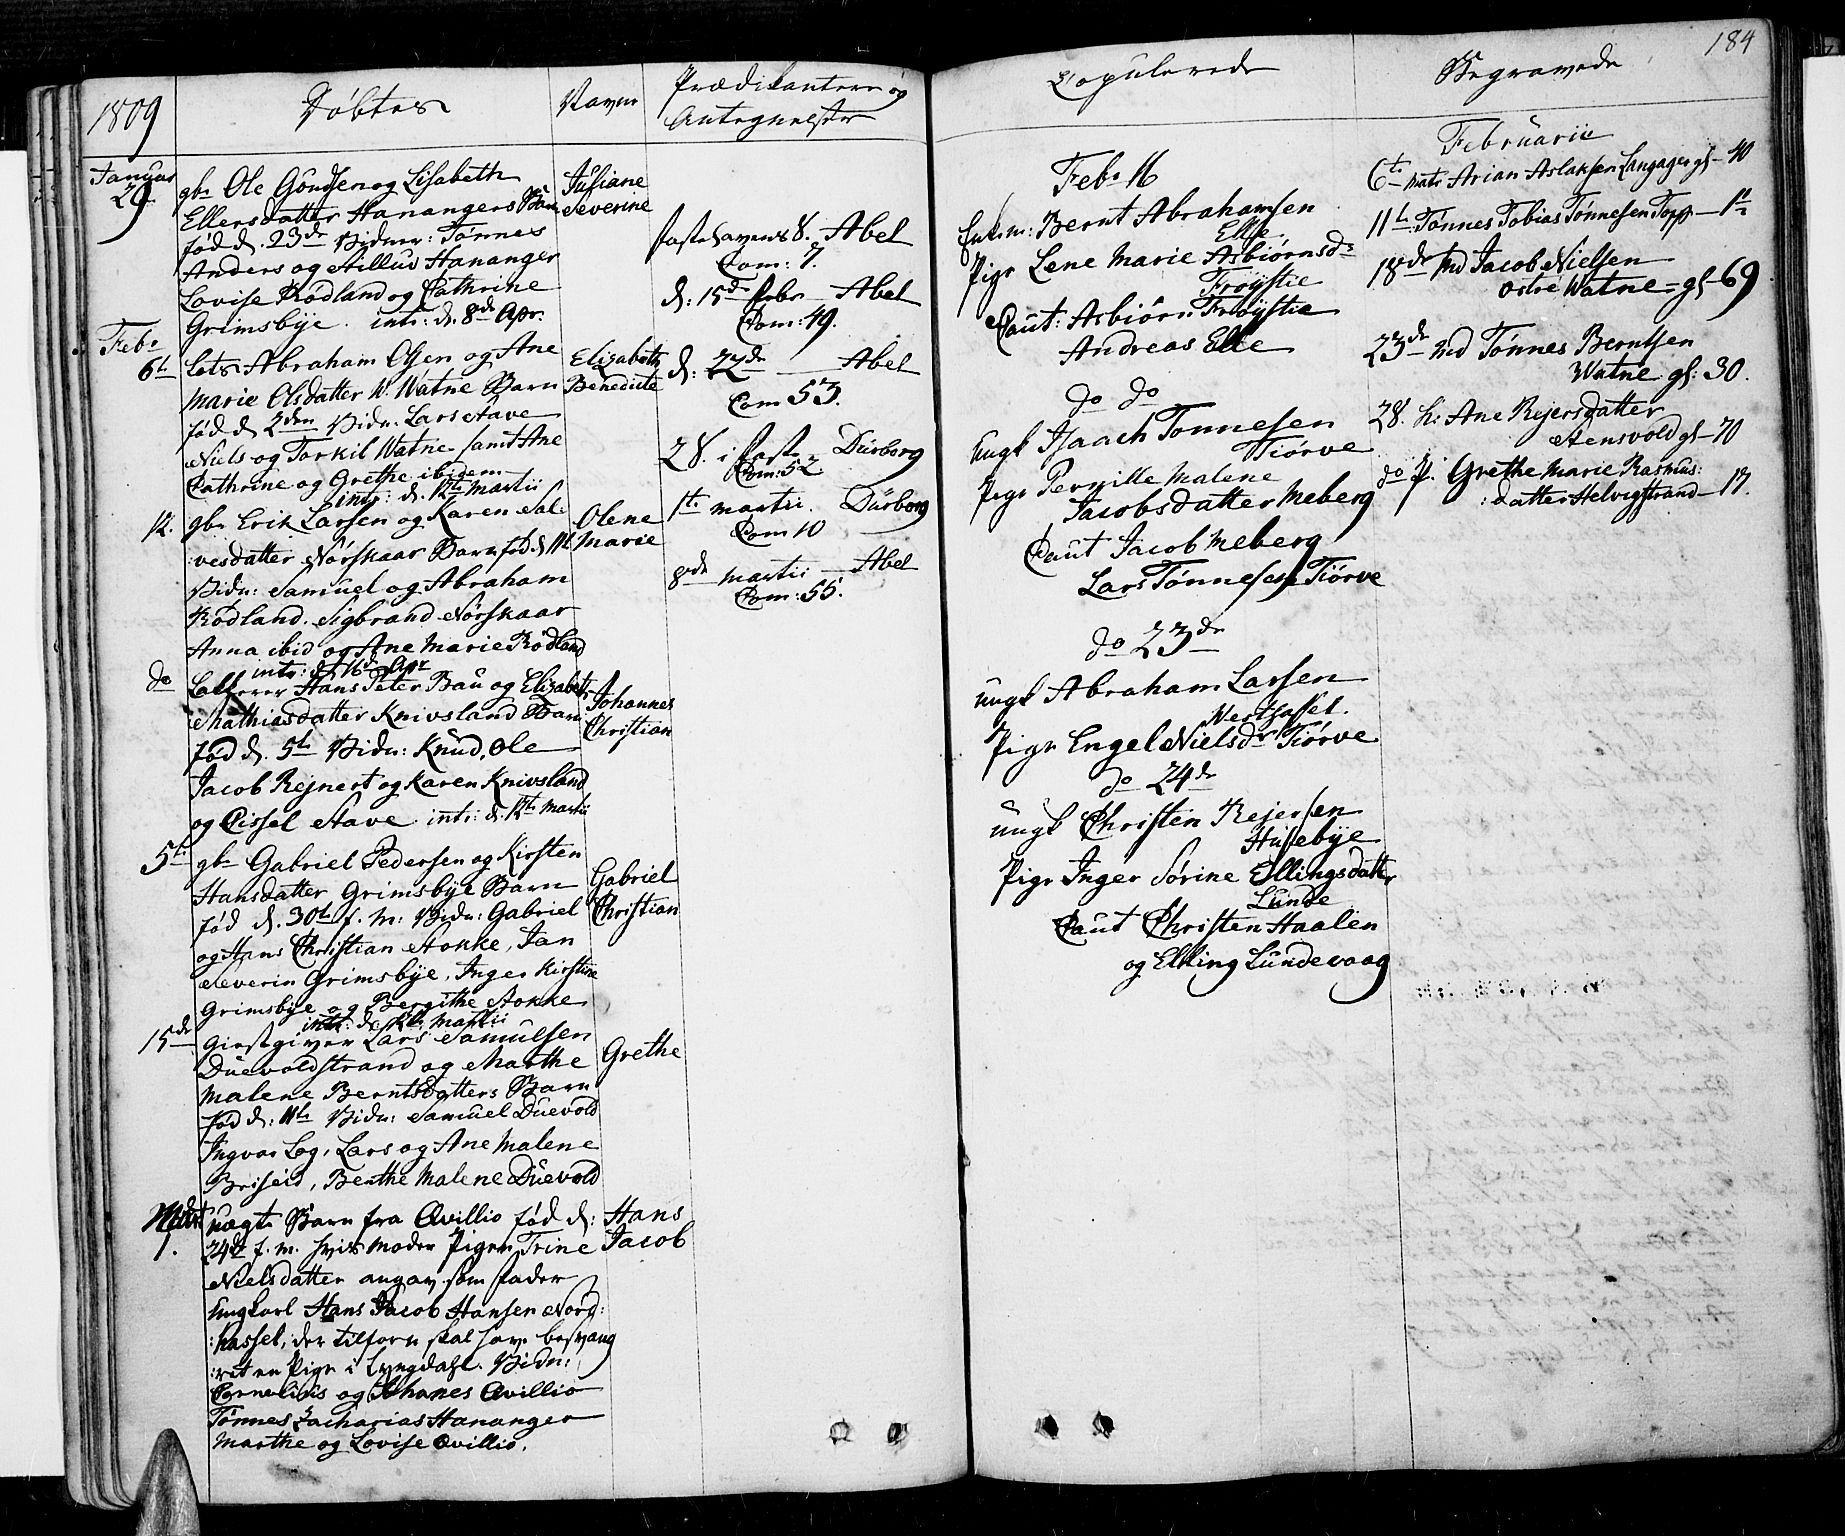 1809
Döbte
Navne
Prædikantere og
Antegnelser
Januar
29
gbr Ole Gundsen og Lisabeth
Ellersdatter Hanangers Barn
fød d. 23de Vidner: Tönnes
Anders og Aillu Hananger
Lovise Rödland og Cathrine
Grimsbye. intr: d. 8de Apr.
Juliane
Severine
Febr
6t
Lots Abraham Olsen og Ane
Marie Olsdatter W. Watne Barn
fød d 2den Vidn. Lars Stave
Niels og Torkil Watne samt Ane
Cathrine og Grethe ibidem
intr: d. 12te Martii
Elizabeth
Benedicte
12.
gbr Erik Larsen og Karen Sal:
:vesdatter Nörskaar Barn fød d 11t
Vidn: Samuel og Abraham
Rödland. Sigbrand Nörskaar
Anna ibid og Ane Marie Rödland
intr: d. 16de Apr
Olene
Marie
do
Hans Peter Bau og Elizabeth
Mathiasdatter Knivsland Barn
fød d. 5t Vidn: Knud, Ole
Jacob Rejnert og Karen Knivsland
og Cissel Stave. intr: d. 12te Martii
Johannes
Christian
5te
gbr Gabriel Pedersen og Kirsten
Hansdatter Grimsbye Barn
fød d. 30t f. m: Vidn: Gabriel
og Hans Christian Stokke, Jan
Severin Grimsbye, Inger Kirstine
Grimsbye og Bergithe Stokke
intr: d. 12te Martii
Gabriel
Christian
15de
Giestgiver Lars Samulsen
Duevoldstrand og Marthe
Malene Berntsdatters Barn
fød d: 11te Vidn: Samuel Duevold
Ingvar Log, Lars og Ane Malene
Briseid, Berthe Malene Duevold
Grethe
Marti
1.
uægte Barn fra Qvillio fød d:
24de f. m. hvis moder Pigen Trine
Nielsdatter angav som fader
ungkarl Hans Jacob Hansen Nord:
:hassel, der tilforn skal have besvang
:ret en Pige i Lyngdahl. Vidn:
Cornelius og Johanes Qvillio
Tönnes Zacharias Hananger
Marthe og Lovise Qvillio.
Hans
Jacob
Fastelavens S. Abel
Com: 7.
d: 15de febr Abel
Com: 49.
d: 22de Abel
Com 53.
28. i faste Dürborg
Com: 52
1te martii. Dürborg
Com 10
8de martii Abel
Com: 55.
184
Copulerede
Febr 16
Enkem: Bernt Abrahamsen
Elle
Pige Lene Marie Asbiörnsdr
Fröystie
Caut: Asbiörn Fröystie
Andreas Elle
do do
ungk Isaach Tonnesen
Tiörve
Pige Pernille Malene
Jacobsdatter Meberg
Caut Jacob Meberg
Lars Tönnesen Tiörve
do 23de
ungk Abraham Larsen
Westhassel.
Pige Engel Nielsdr Tiörve
do 24de
ungk Christen Rejersen
Husebye
Pige Inger Sörine Ellingsdatter
Lunde
Caut Christen Haalen
og Elling Lundevaag
Begravede
Februarii
6te Arian Aslaksen Langager gl 40
11te Tönnes Tobias Tönnesen Topp 1
18de Md Jacob Nielsen
östre Watne gl 69
23de Md Tönnes Berntsen
Watne gl: 30.
28. k: Ane Rejersdatter
Stensvold gl 70
do P. Grethe Marie Rasmus:
:datter Helvigstrand 17.